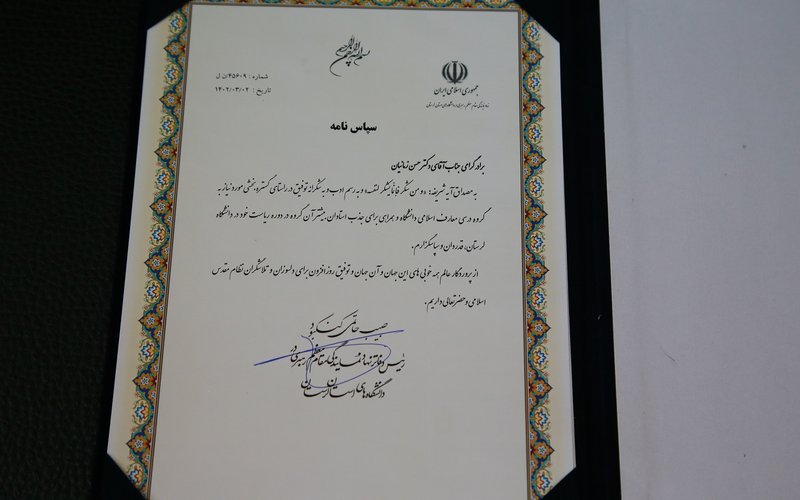 بسم الله الرحمن الرحیم
جمهوری اسلامی ایران
شماره : ۴۵۶۰۹/ن ل
تاریخ : ۱۴۰۲/۰۳/۰۲
سپاس نامه
برادر گرامی جناب آقای دکتر حسن زمانیان
به مصداق آیه شریفه: «و من شکر فانما یشکر لنفسه» و به رسم ادب و به شکرانه توفیق در راستای گستره بخشی مورد نیاز به
گروه درسی معارف اسلامی دانشگاه و همراهی برای جذب استادان بیشتر آن گروه در دوره ریاست خود در دانشگاه
لرستان، قدردان و سپاسگزارم.
از پروردگار عالم همه خوبی های این جهان و آن جهان و توفیق روزافزون برای دلسوزان و تلاشگران نظام مقدس
اسلامی و حضرتعالی داریم.
حبیب حاتمی کنکبود
رئیس دفاتر نهاد نمایندگی مقام معظم رهبری در
دانشگاه های استان لرستان